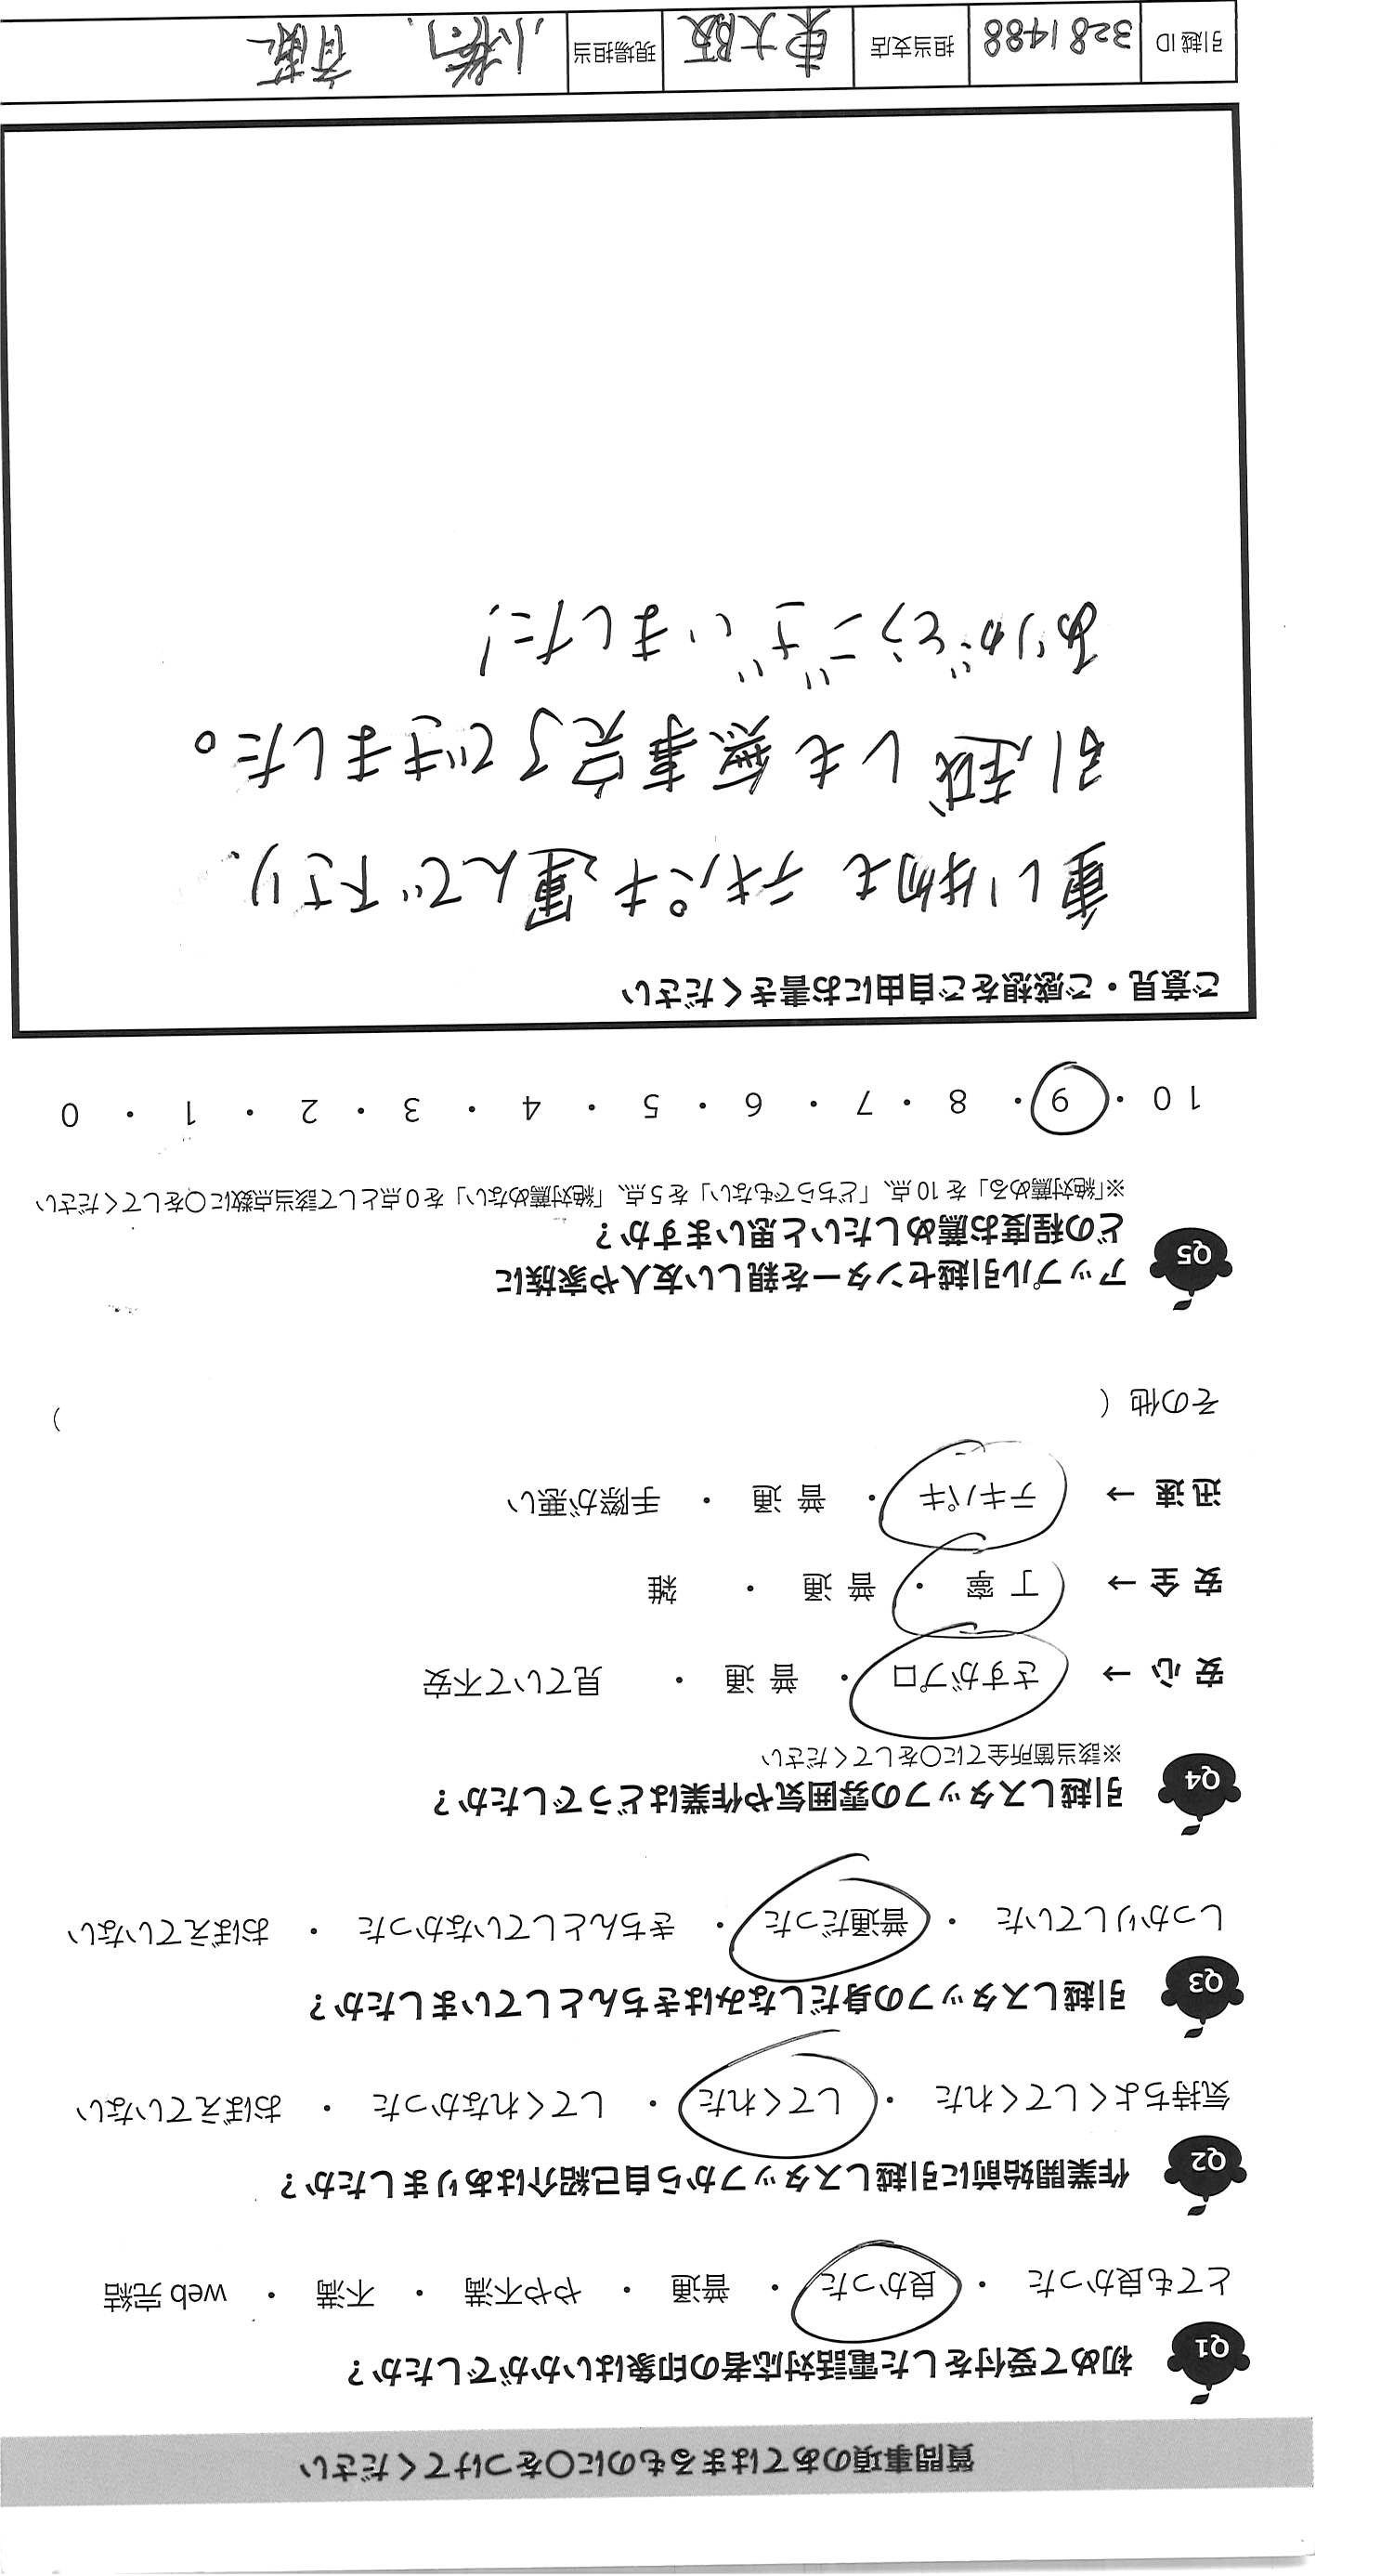 質問事項のあてはまるものに〇をつけてください
Q1 初めて受付をした電話対応者の印象はいかがでしたか？
とても良かった ・ 良かった ・ 普通 ・ やや不満 ・ 不満 ・ web 完結
Q2 作業開始前に引越しスタッフから自己紹介はありましたか？
気持ちよくしてくれた ・ してくれた ・ してくれなかった ・ おぼえていない
Q3 引越しスタッフの身だしなみはきちんとしていましたか？
しっかりしていた ・ 普通だった ・ きちんとしていなかった ・ おぼえていない
Q4 引越しスタッフの雰囲気や作業はどうでしたか？
※該当箇所全てに〇をしてください
安 心 → さすがプロ ・ 普 通 ・ 見ていて不安
安 全 → 丁 寧 ・ 普 通 ・ 雑
迅 速 → テキパキ ・ 普 通 ・ 手際が悪い
その他 （ ）
Q5 アップル引越センターを親しい友人や家族に
どの程度お薦めしたいと思いますか？
※「絶対薦める」を 10 点、「どちらでもない」を 5 点、「絶対薦めない」を 0 点として該当点数に〇をしてください
10 ・ 9 ・ 8 ・ 7 ・ 6 ・ 5 ・ 4 ・ 3 ・ 2 ・ 1 ・ 0
ご意見・ご感想をご自由にお書きください
重い物もテキパキ運んで下さり、
引越しも無事完了できました。
ありがとうございました！
引越 ID 3281488 担当支店 東大阪 現場担当